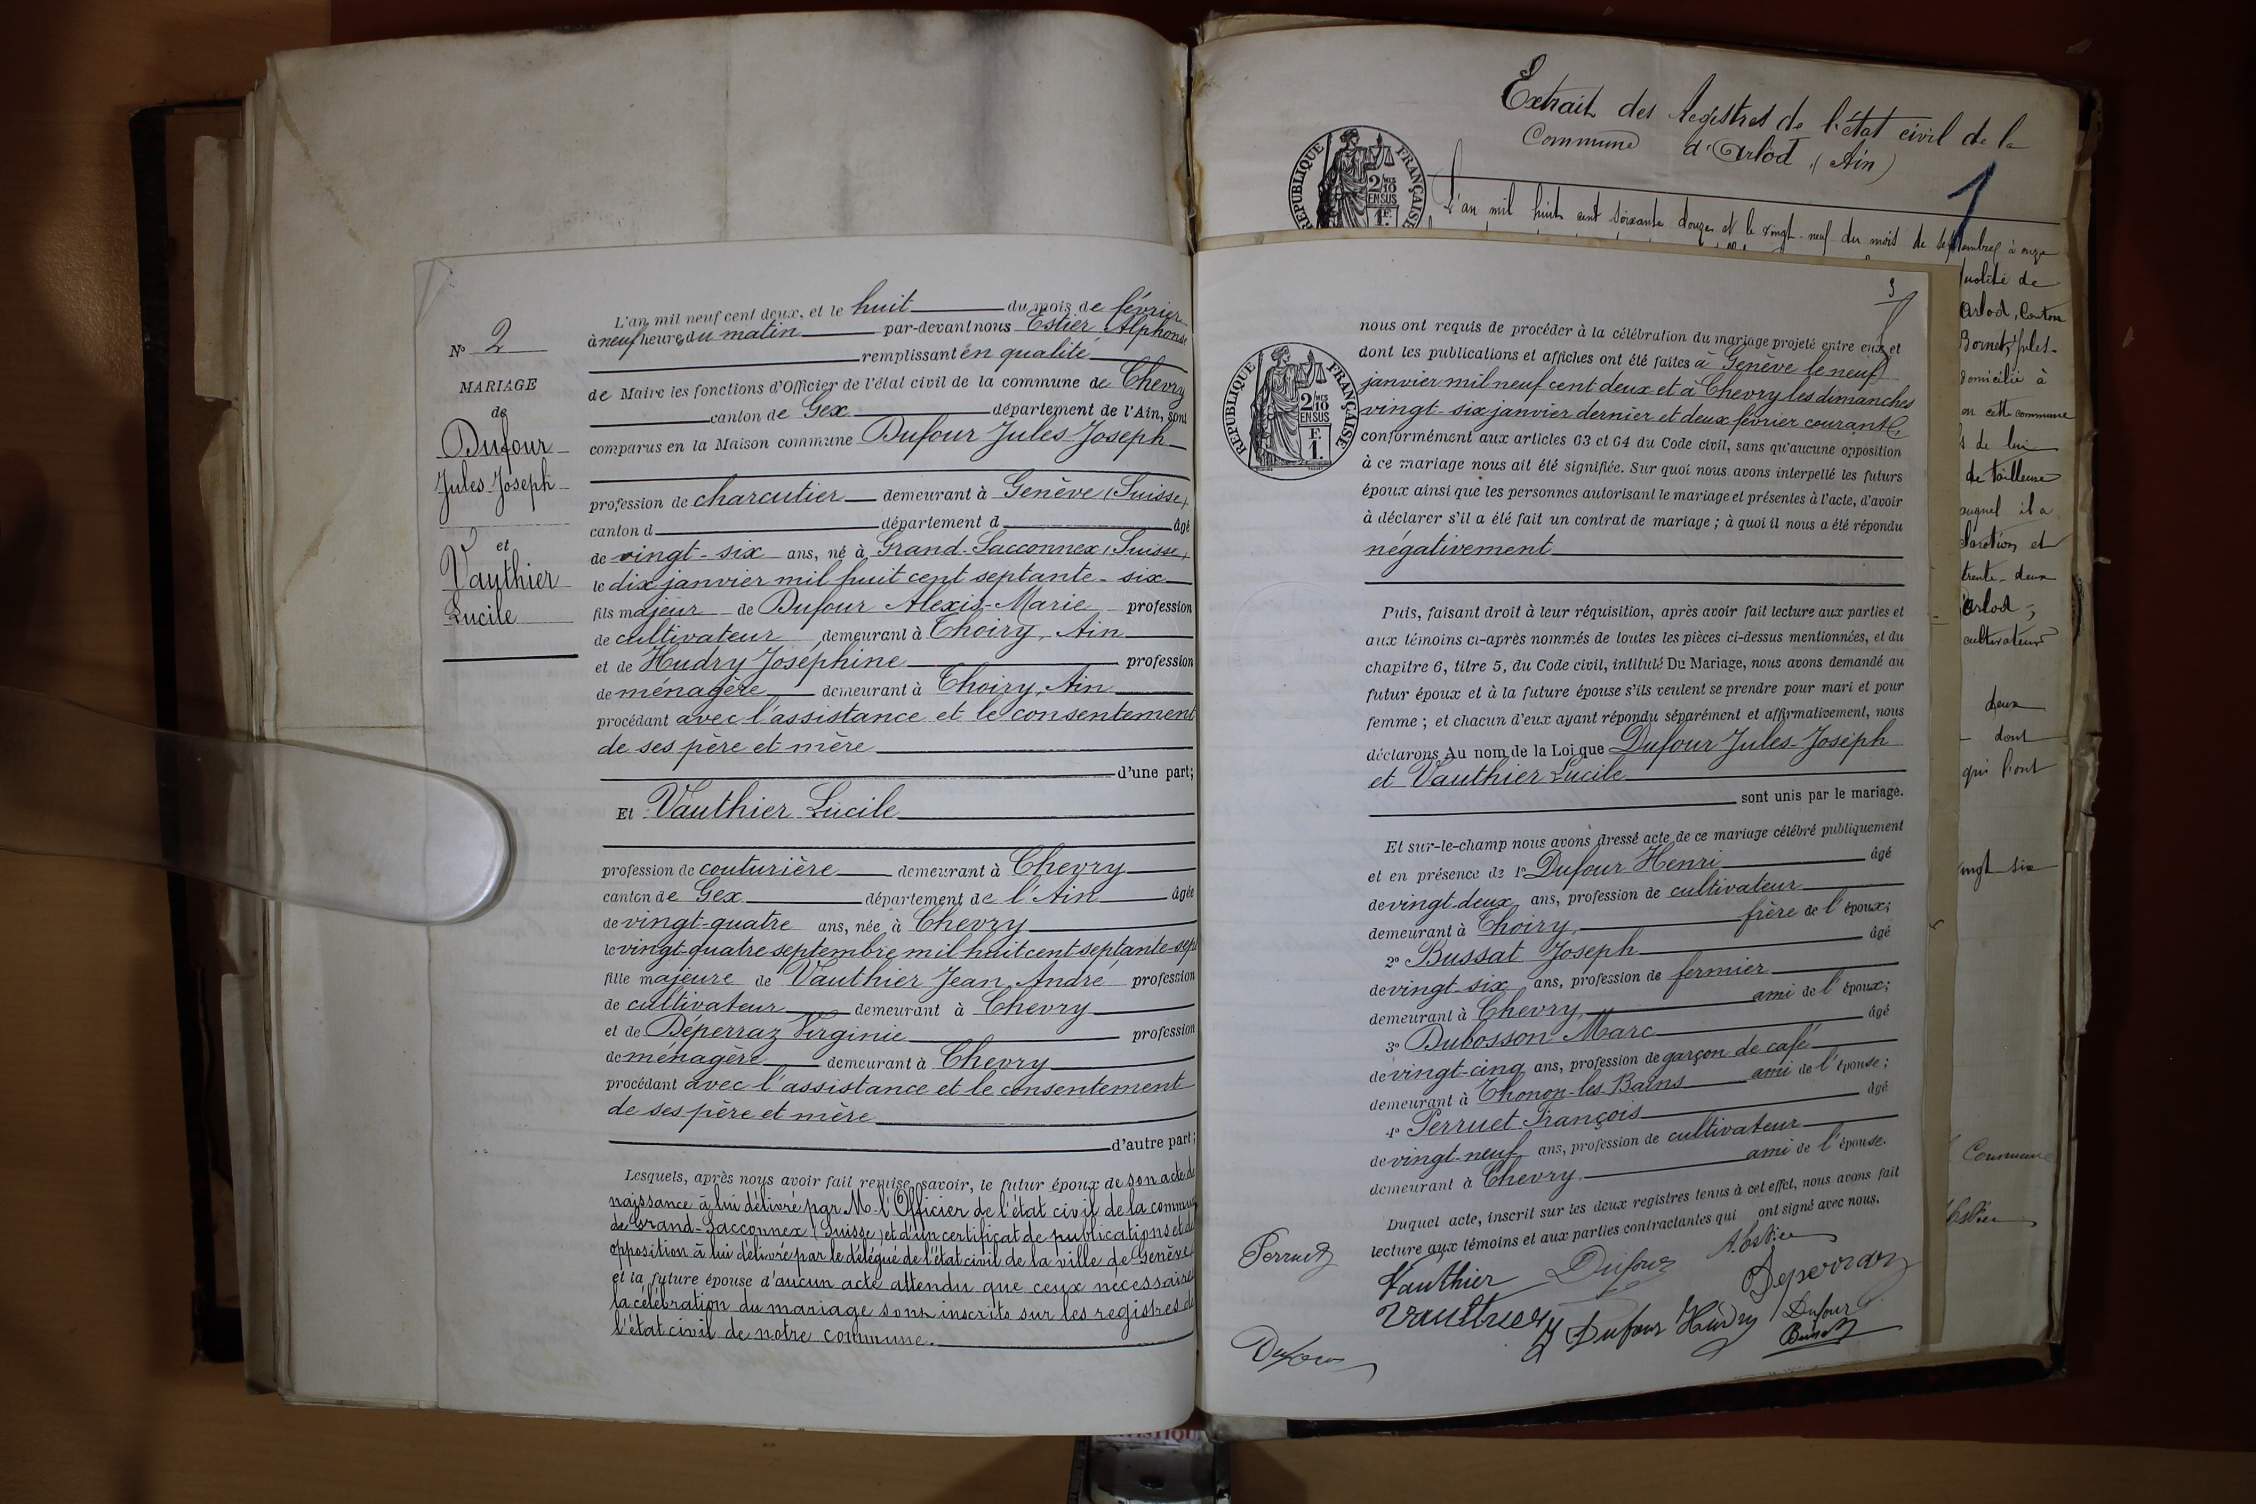 Nº 2
MARIAGE
de
Dufour
Jules-Joseph
et
Vauthier
Lucile
L'an mil neuf cent deux, et le huit du mois de février
à neuf heures du matin par-devant nous Estier Alphonse
remplissant en qualité
de Maire les fonctions d'Officier de l'état civil de la commune de Chevry
canton de Gex département de l'Ain, sont
comparus en la Maison commune Dufour Jules-Joseph
profession de charcutier demeurant à Genève (Suisse)
canton d département d âgé
de vingt-six ans, né à Grand-Sacconnex (Suisse)
le dix janvier mil huit cent septante-six
fils majeur de Dufour Alexis-Marie profession
de cultivateur demeurant à Thoiry, Ain
et de Hudry Joséphine profession
de ménagère demeurant à Thoiry, Ain
procédant avec l'assistance et le consentement
de ses père et mère
d'une part;
Et Vauthier Lucile
profession de couturière demeurant à Chevry
canton de Gex département de l'Ain âgée
de vingt-quatre ans, née à Chevry
le vingt-quatre septembre mil huit cent septante-sept
fille majeure de Vauthier Jean André profession
de cultivateur demeurant à Chevry
et de Déperraz Virginie profession
de ménagère demeurant à Chevry
procédant avec l'assistance et le consentement
de ses père et mère
d'autre part;
Lesquels, après nous avoir fait remise, savoir, le futur époux de son acte de
naissance à lui délivré par M. l'Officier de l'état civil de la commune
de Grand-Sacconnex (Suisse) et d'un certificat de publications et de
opposition à lui délivré par le délégué de l'état civil de la ville de Genève
et la future épouse d'aucun acte attendu que ceux nécessaires
la célébration du mariage sont inscrits sur les registres de
l'état civil de notre commune.
Extrait des Registres de l'état civil de la
Commune d'Arlod (Ain)
1
RÉPUBLIQUE FRANÇAISE
2/10 MES
EN SUS
1 F.
L'an mil huit cent soixante douze et le vingt-neuf du mois de septembre à onze
qualité de
Arlod, Canton
Bornet, Jules-
domicilié à
en cette commune
s de lui
de tailleuse
auquel il a
claration et
trente-deux
Arlod;
cultivateur
deux
dont
qui l'ont
vingt six
Commune
3
nous ont requis de procéder à la célébration du mariage projeté entre eux et
dont les publications et affiches ont été faites à Genève le neuf
janvier mil neuf cent deux et à Chevry les dimanches
vingt-six janvier dernier et deux février courant
RÉPUBLIQUE FRANÇAISE
2/10 MES
EN SUS
F.
1.
conformément aux articles 63 et 64 du Code civil, sans qu'aucune opposition
à ce mariage nous ait été signifiée. Sur quoi nous avons interpellé les futurs
époux ainsi que les personnes autorisant le mariage et présentes à l'acte, d'avoir
à déclarer s'il a été fait un contrat de mariage; à quoi il nous a été répondu
négativement
Puis, faisant droit à leur réquisition, après avoir fait lecture aux parties et
aux témoins ci-après nommés de toutes les pièces ci-dessus mentionnées, et du
chapitre 6, titre 5, du Code civil, intitulé Du Mariage, nous avons demandé au
futur époux et à la future épouse s'ils veulent se prendre pour mari et pour
femme; et chacun d'eux ayant répondu séparément et affirmativement, nous
déclarons Au nom de la Loi que Dufour Jules-Joseph
et Vauthier Lucile
sont unis par le mariage.
Et sur-le-champ nous avons dressé acte de ce mariage célébré publiquement
et en présence de 1º Dufour Henri âgé
de vingt-deux ans, profession de cultivateur
demeurant à Thoiry, frère de l'époux;
2º Bussat Joseph âgé
de vingt-six ans, profession de fermier
demeurant à Chevry, ami de l'époux;
3º Dubosson Marc âgé
de vingt-cinq ans, profession de garçon de café
demeurant à Thonon-les-Bains ami de l'épouse;
4º Perruet François âgé
de vingt-neuf ans, profession de cultivateur
demeurant à Chevry ami de l'épouse.
Duquel acte, inscrit sur les deux registres tenus à cet effet, nous avons fait
lecture aux témoins et aux parties contractantes qui ont signé avec nous.
Perruet
Vauthier Dufour A. Estier
Deperraz
Vauthier Dufour Hudry Dufour
Bussat